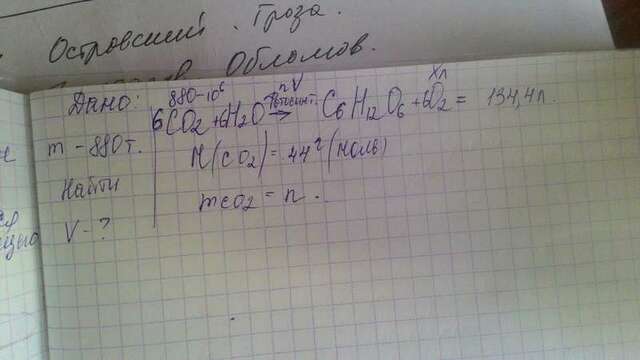 Островский. Гроза.
Обломов.
Дано:
m - 880т.
Найти
V - ?
880·10⁶ nV Xл
6CO₂ + 6H₂O фотосинт. → C₆H₁₂O₆ + 6O₂ = 134,4л.
M(CO₂) = 44 г/(моль)
mco₂ = n.